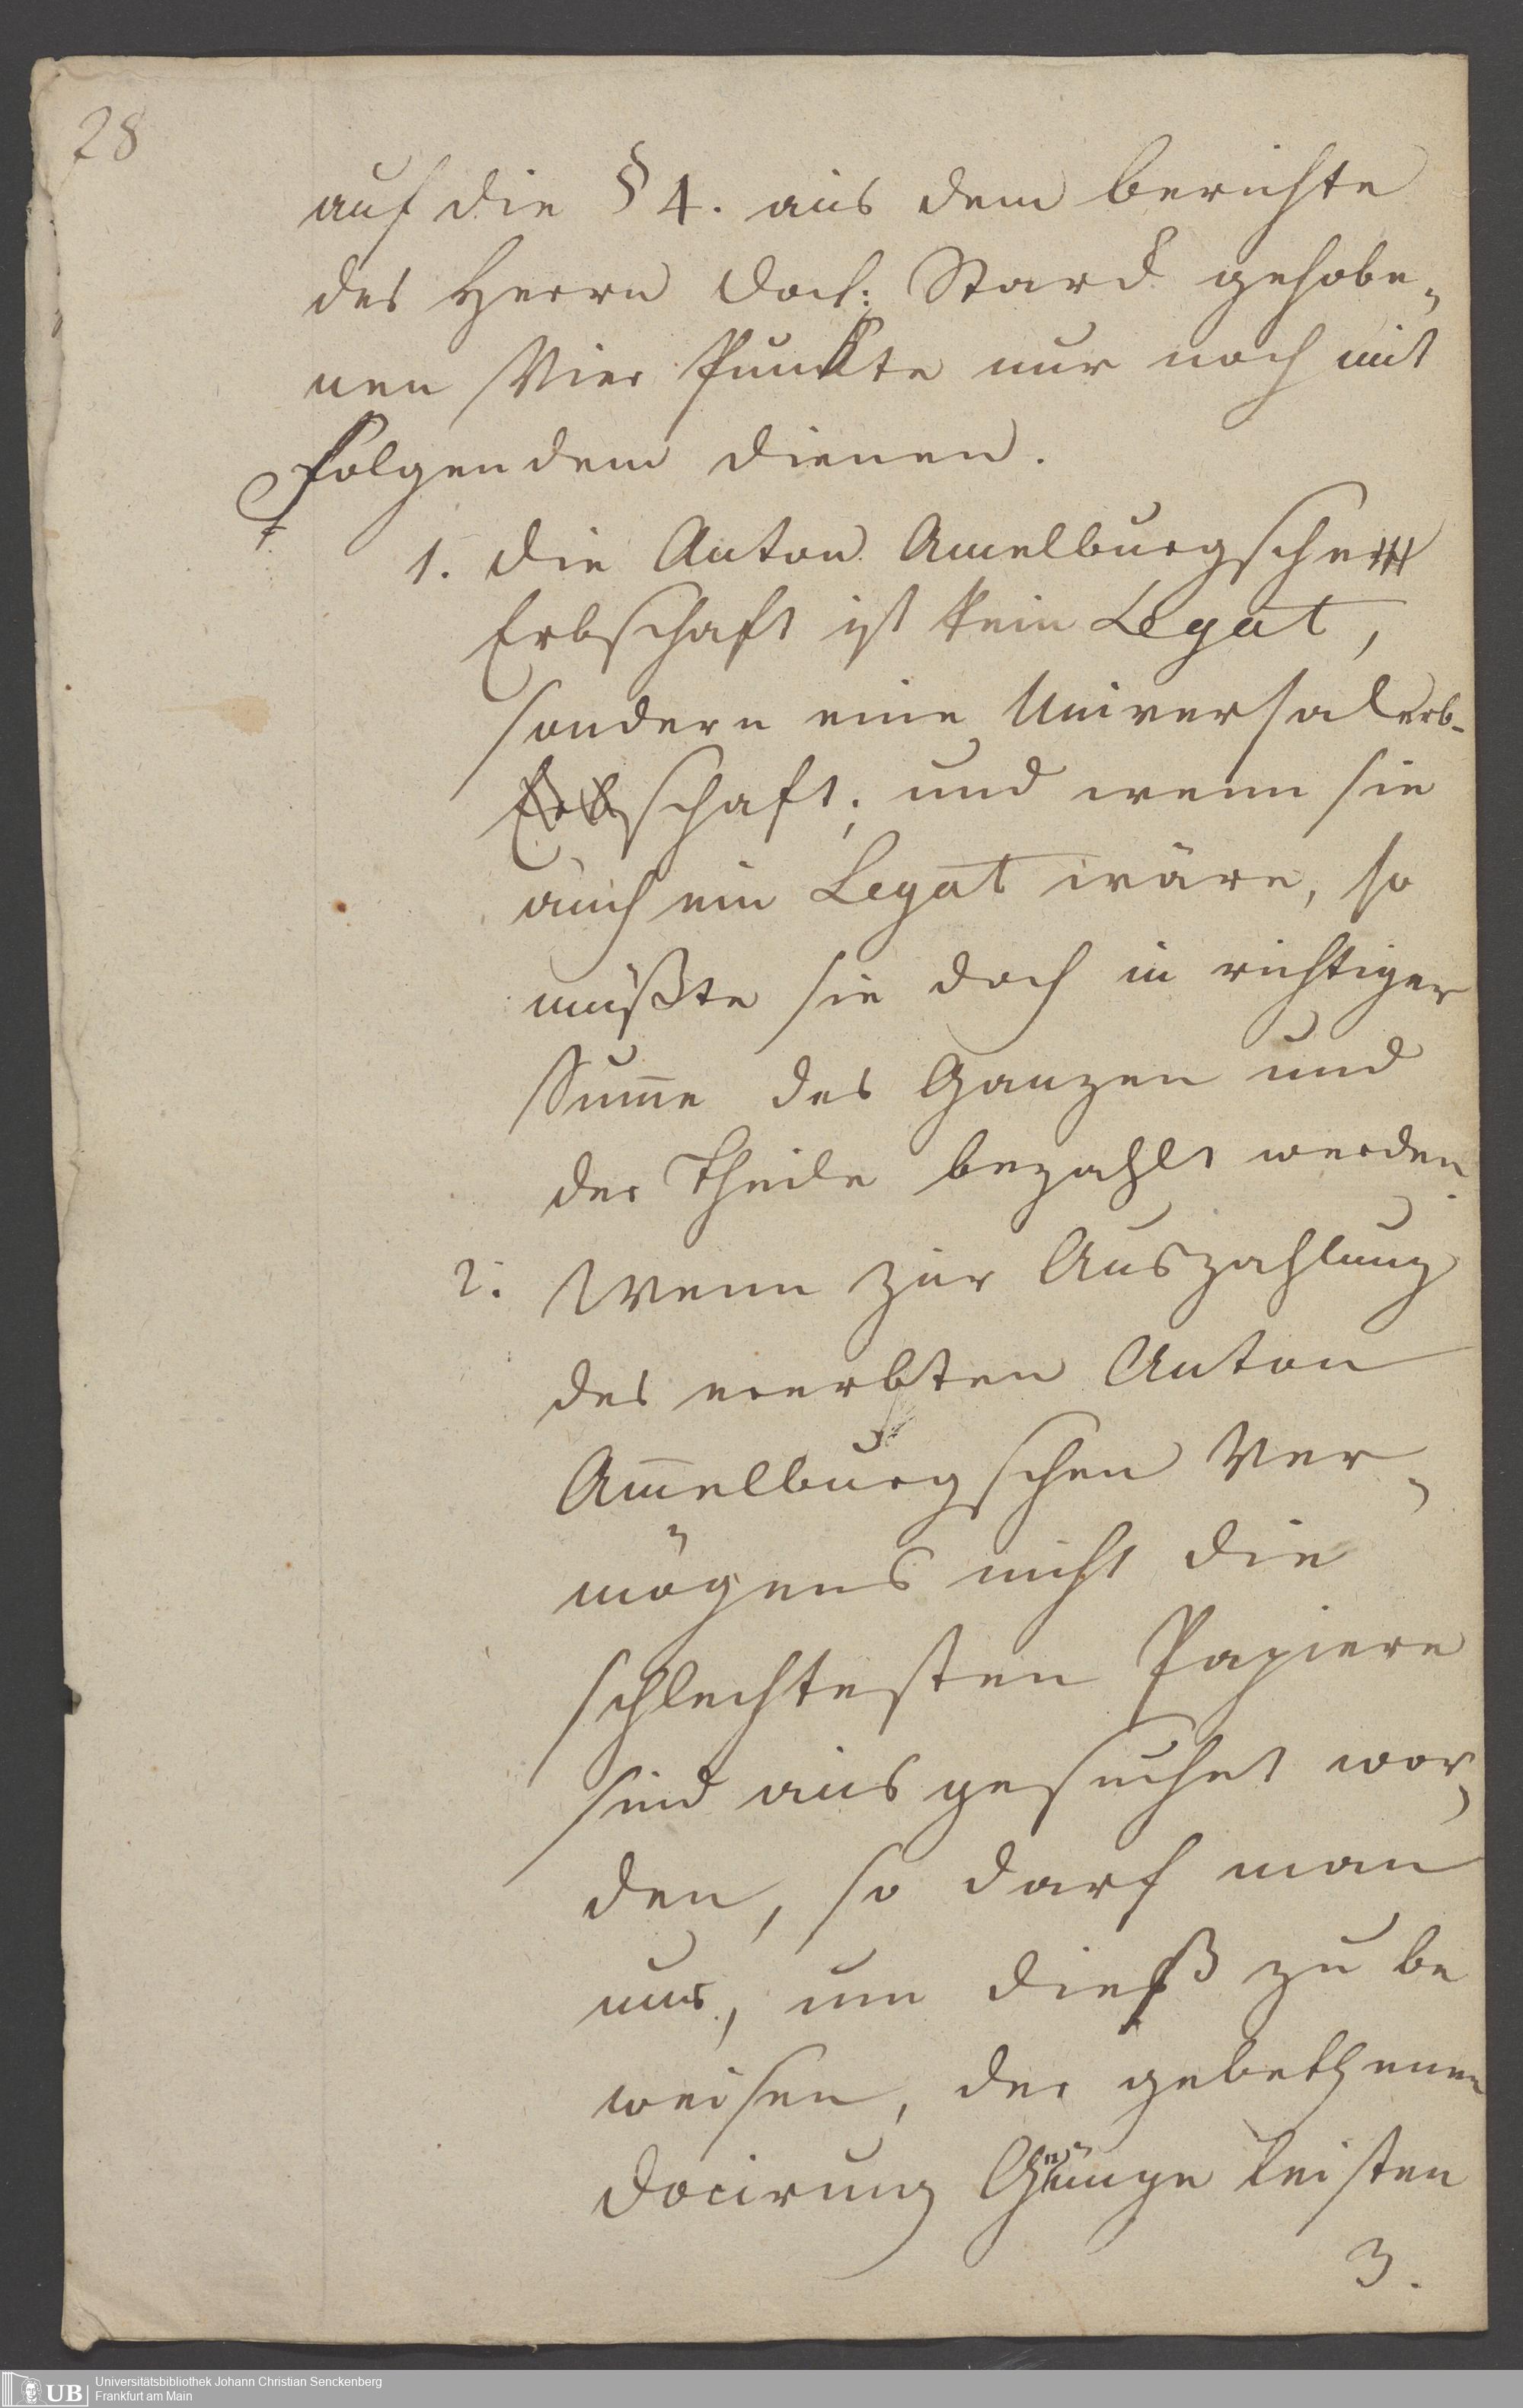 28
auf die § 4. aus dem berichte
des Herrn Doct: Starck gehobe-
nen Vier Punkte nur noch mit
folgendem dienen.
1. die Anton Amelburgsche
Erbschaft ist kein Legat,
sondern eine Universalerb-
schaft; und wenn sie
auch ein Legat wäre, so
müßte sie doch in richtiger
Sum̅e des Ganzen und
der Theile bezahlt werden.
2. Wenn zur Auszahlung
des ererbten Anton
Am̅elburgschen Ver-
mögens nicht die
schlechtesten Papiere
sind ausgesuchet wor-
den, so darf man
uns, um dieß zu be
weisen, der gebethenen
Docirung Genüge leisten
3.
UB Universitätsbibliothek Johann Christian Senckenberg
Frankfurt am Main